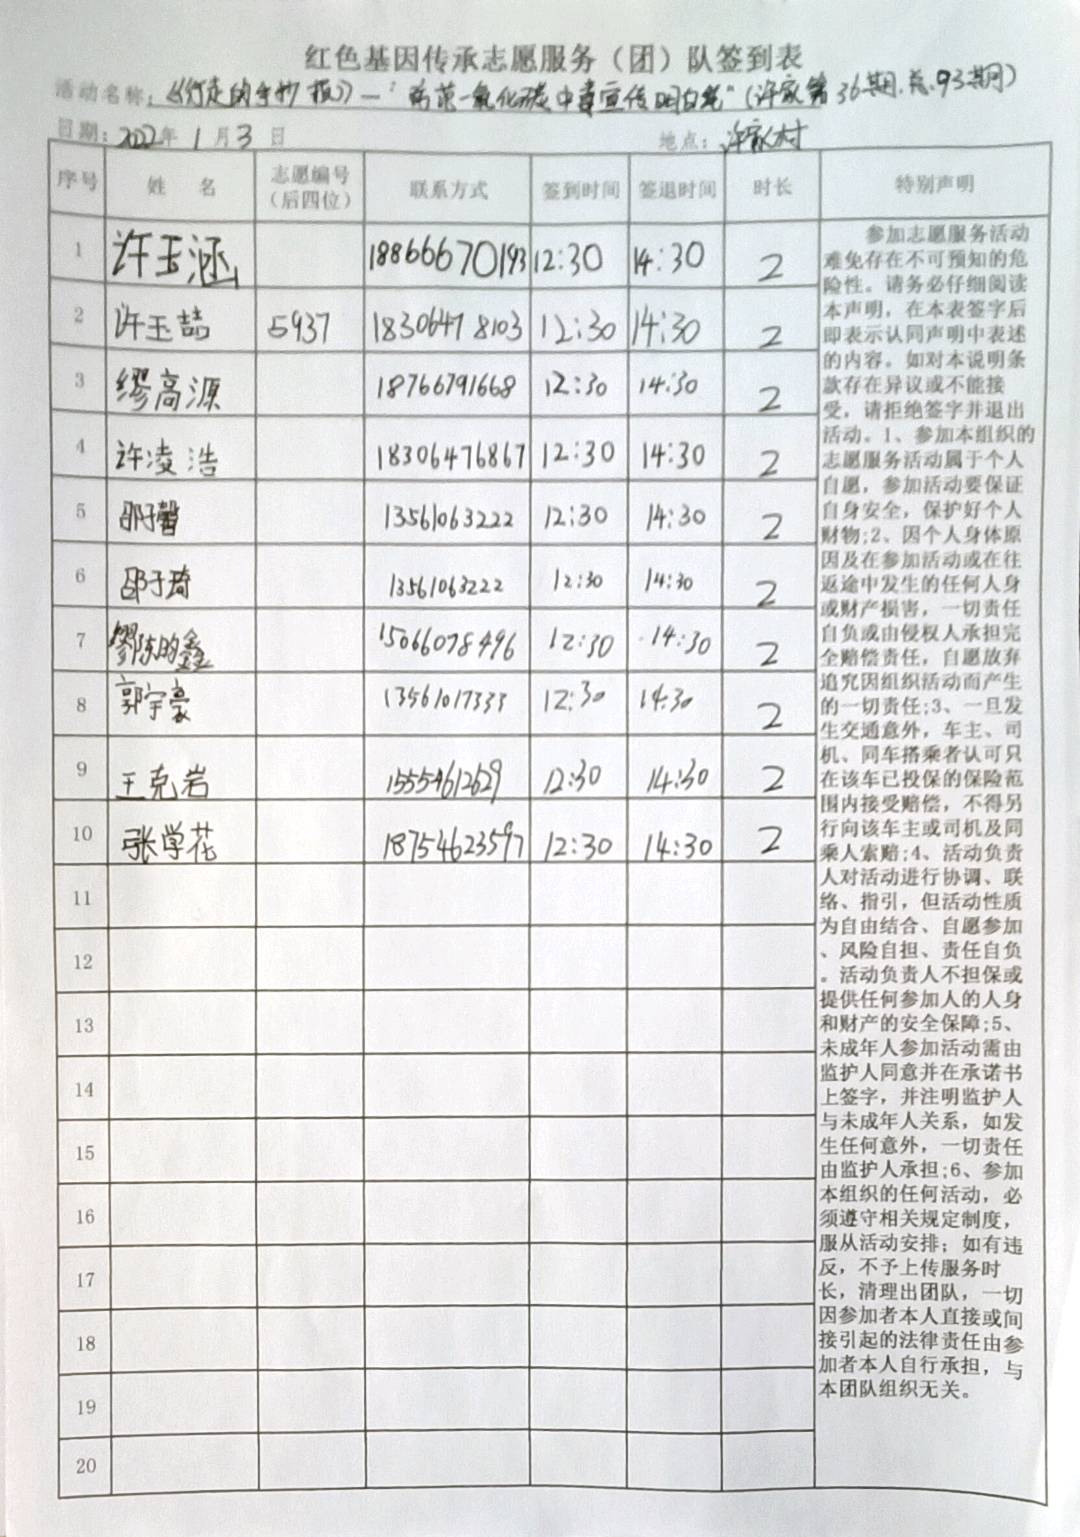 红色基因传承志愿服务（团）队签到表
活动名称：《行走的手抄报》—"防范一氧化碳中毒宣传明白纸"（许家第36期.总.93期）
日期：2022年1月3日 地点：许家村
序号 姓 名 志愿编号（后四位） 联系方式 签到时间 签退时间 时长 特别声明
1 许玉涵 18866670193 12:30 14:30 2
2 许玉喆 5937 18306478103 12:30 14:30 2
3 缪高源 18766791668 12:30 14:30 2
4 许凌浩 18306476867 12:30 14:30 2
5 邵于馨 13561063222 12:30 14:30 2
6 邵于琦 13561063222 12:30 14:30 2
7 缪陈昀鑫 15066078496 12:30 14:30 2
8 郭宇豪 13561017333 12:30 14:30 2
9 王克岩 15554612629 12:30 14:30 2
10 张学花 18754623597 12:30 14:30 2
11
12
13
14
15
16
17
18
19
20
参加志愿服务活动
难免存在不可预知的危
险性。请务必仔细阅读
本声明，在本表签字后
即表示认同声明中表述
的内容。如对本说明条
款存在异议或不能接
受，请拒绝签字并退出
活动。1、参加本组织的
志愿服务活动属于个人
自愿，参加活动要保证
自身安全，保护好个人
财物;2、因个人身体原
因及在参加活动或在往
返途中发生的任何人身
或财产损害，一切责任
自负或由侵权人承担完
全赔偿责任，自愿放弃
追究因组织活动而产生
的一切责任;3、一旦发
生交通意外，车主、司
机、同车搭乘者认可只
在该车已投保的保险范
围内接受赔偿，不得另
行向该车主或司机及同
乘人索赔;4、活动负责
人对活动进行协调、联
络、指引，但活动性质
为自由结合、自愿参加
、风险自担、责任自负
。活动负责人不担保或
提供任何参加人的人身
和财产的安全保障;5、
未成年人参加活动需由
监护人同意并在承诺书
上签字，并注明监护人
与未成年人关系，如发
生任何意外，一切责任
由监护人承担;6、参加
本组织的任何活动，必
须遵守相关规定制度，
服从活动安排；如有违
反，不予上传服务时
长，清理出团队，一切
因参加者本人直接或间
接引起的法律责任由参
加者本人自行承担，与
本团队组织无关。